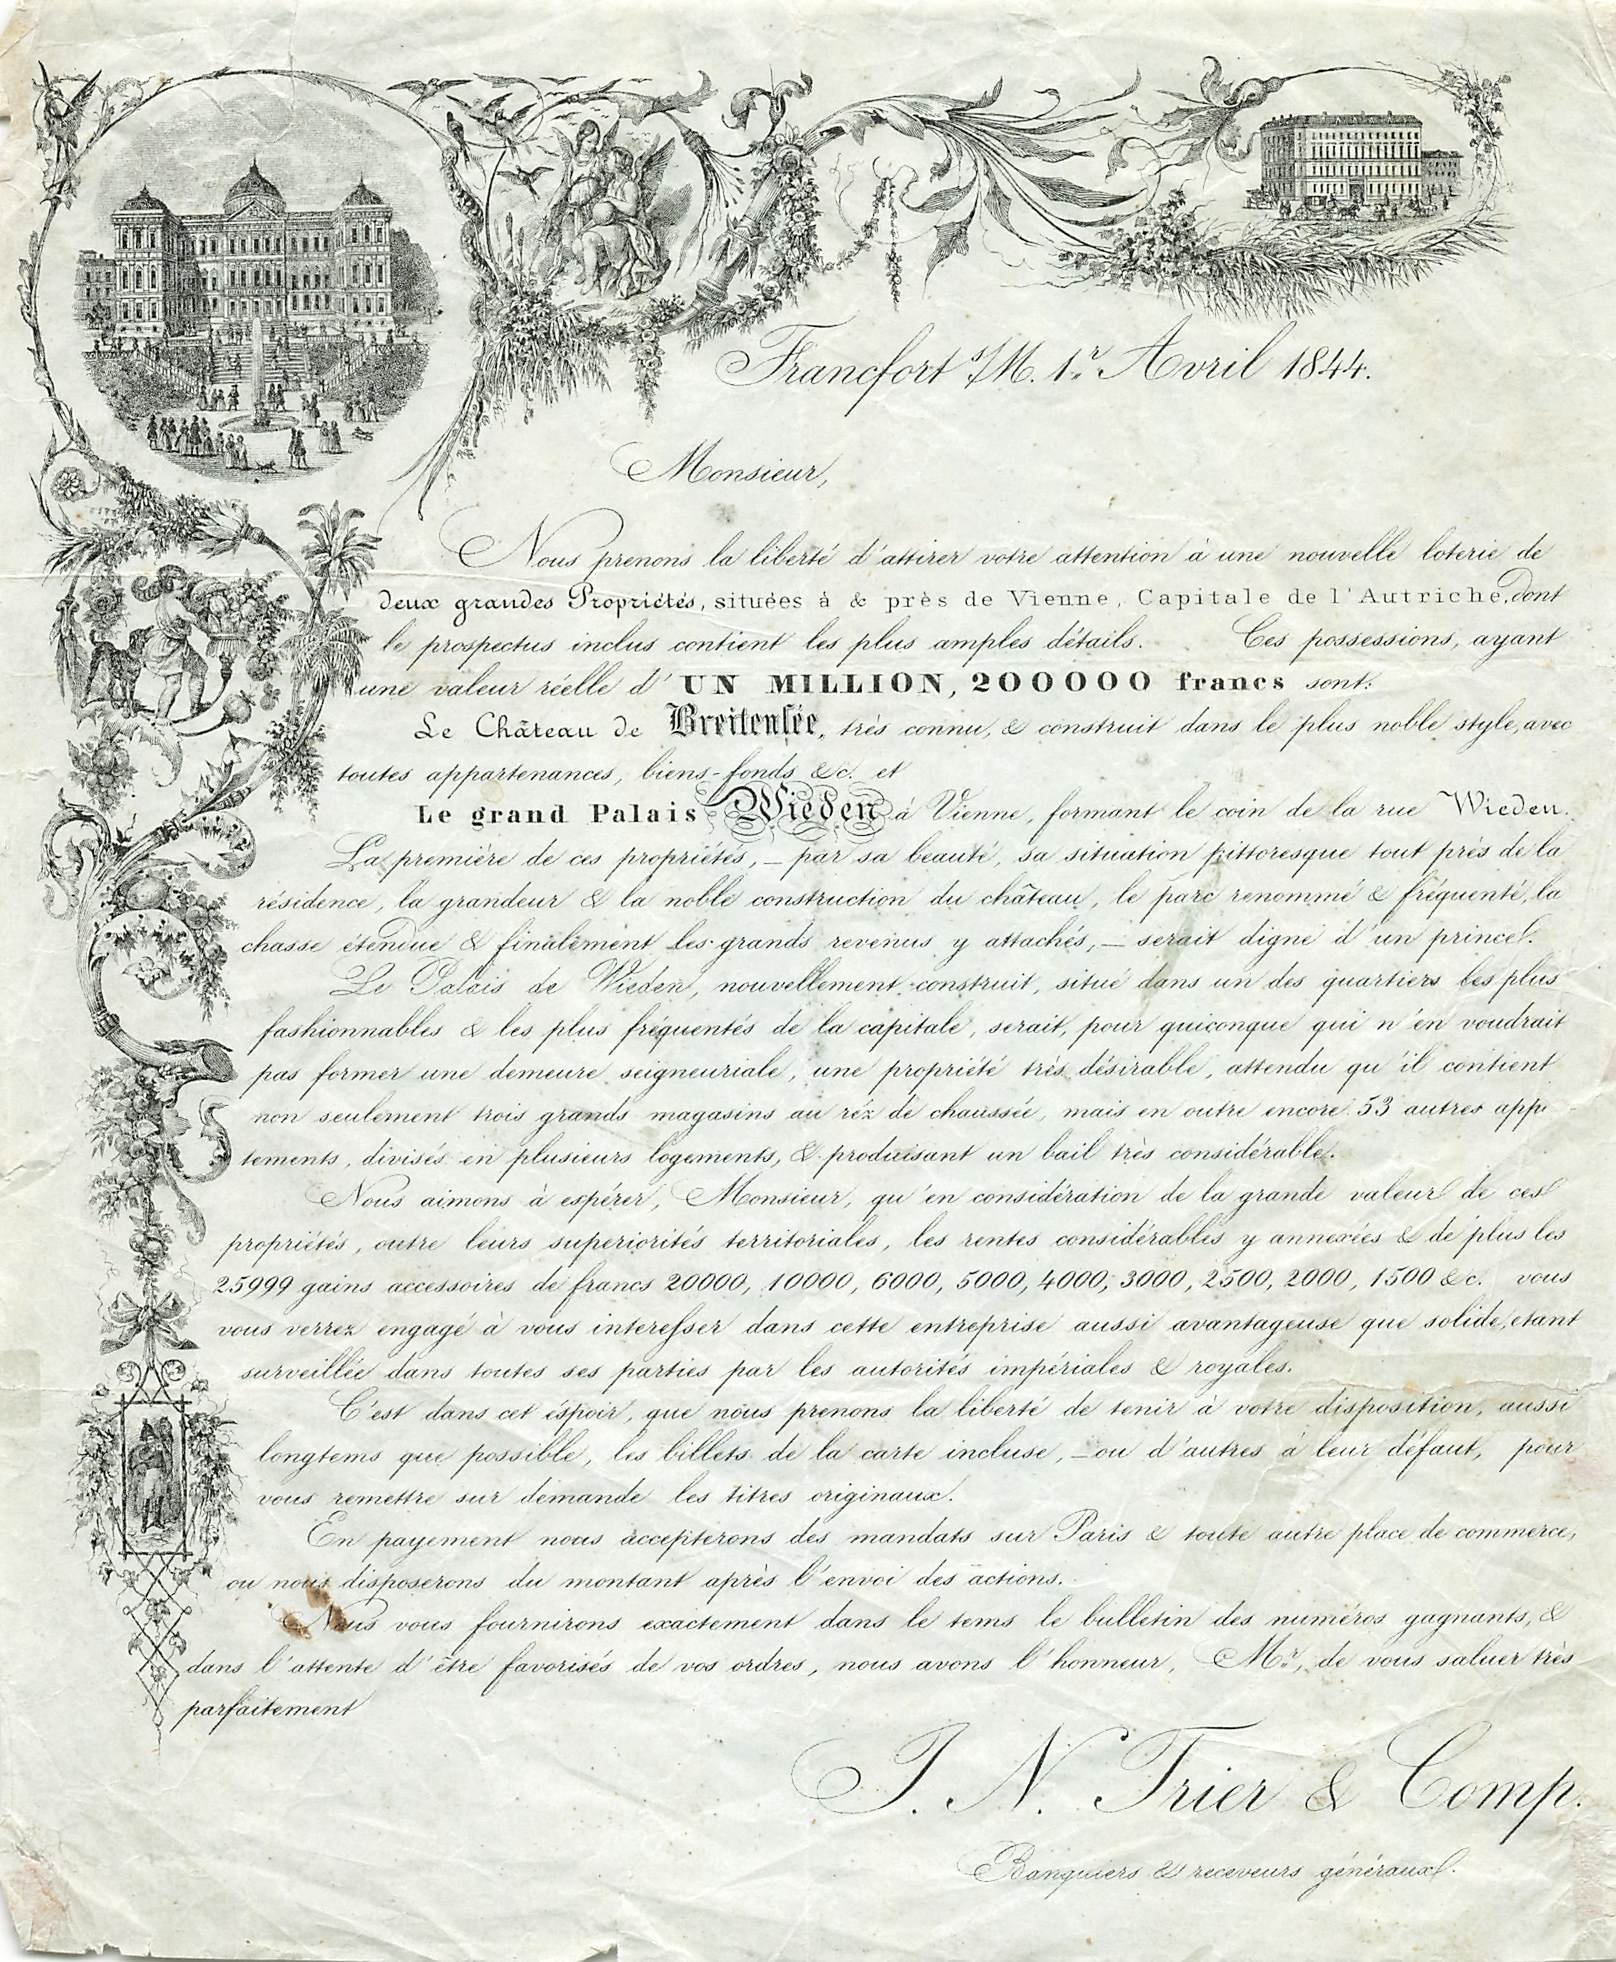 Francfort s/M. 1r. Avril 1844.
Monsieur,
Nous prenons la liberté d'attirer votre attention à une nouvelle loterie de
deux grandes Propriétés, situées à & près de Vienne, Capitale de l'Autriche, dont
le prospectus inclus contient les plus amples détails. Ces possessions, ayant
une valeur réelle d' UN MILLION, 200000 francs sont:
Le Château de Breitensée, très connu, & construit dans le plus noble style, avec
toutes appartenances, biens-fonds &c. et
Le grand Palais Wieden à Vienne, formant le coin de la rue Wieden.
La première de ces propriétés, – par sa beauté, sa situation pittoresque tout près de la
résidence, la grandeur & la noble construction du château, le parc renommé & fréquenté, la
chasse étendue & finalement les grands revenus y attachés, – serait digne d'un prince.
Le Palais de Wieden, nouvellement construit, situé dans un des quartiers les plus
fashionnables & les plus fréquentés de la capitale, serait, pour quiconque qui n'en voudrait
pas former une demeure seigneuriale, une propriété très désirable, attendu qu'il contient
non seulement trois grands magasins au réz de chaussée, mais en outre encore 53 autres
tements, divisés en plusieurs logements, & produisant un bail très considérable.
Nous aimons à espérer, Monsieur, qu'en considération de la grande valeur de ces
propriétés, outre leurs superiorités territoriales, les rentes considérables y annexées & de plus les
25999 gains accessoires de francs 20000, 10000, 6000, 5000, 4000, 3000, 2500, 2000, 1500 &c. vous
vous verrez engagé à vous interesser dans cette entreprise aussi avantageuse que solide, etant
surveillée dans toutes ses parties par les autorités impériales & royales.
C'est dans cet éspoir, que nous prenons la liberté de tenir à votre disposition, aussi
longtems que possible, les billets de la carte incluse, – ou d'autres à leur défaut, pour
vous remettre sur demande les titres originaux.
En payement nous accepterons des mandats sur Paris & toute autre place de commerce,
ou nous disposerons du montant après l'envoi des actions.
Nous vous fournirons exactement dans le tems le bulletin des numéros gagnants, &
dans l'attente d'être favorisés de vos ordres, nous avons l'honneur, Mr., de vous saluer très
parfaitement
J. N. Trier & Comp.
Banquiers & receveurs généraux.